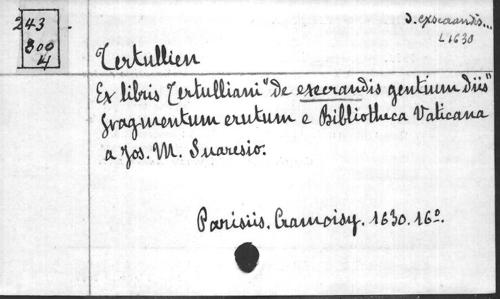 243
800
4
D. execrandis...
L 1630
Tertullien
Ex libris Tertulliani "de execrandis gentium diis"
fragmentum erutum e Bibliotheca Vaticana
a Jos. M. Suaresio.
Parisiis, Cramoisy, 1630. 16º.